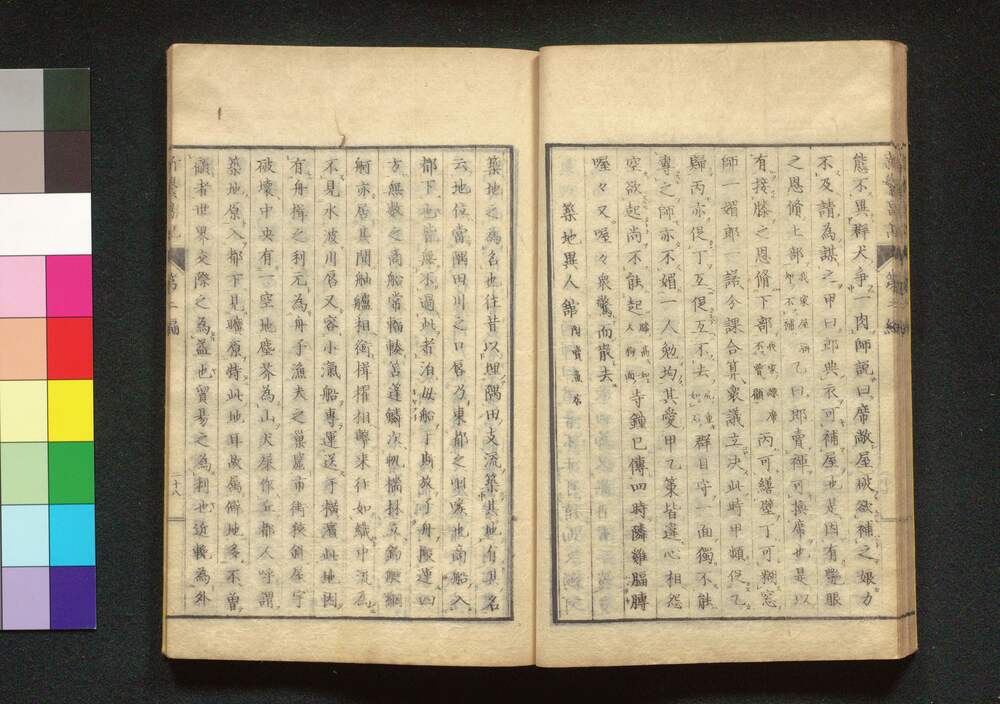 態不異群犬爭一肉師説曰席敝屋破欲補之娘力
不及請為謀之甲曰郎典衣可補屋也是因有豐眼
之恩脩上部 乙曰郎賣禪可換席也是以
有接膝之恩脩下部 丙可繕壁丁可糊窓
師一媚郎一諾今課合算衆議立決此時甲頻促乙
歸丙亦促丁互促互不去 群目守一面獨不能
專之師亦不媚一人勉均其愛甲乙策皆違心相怨
空欲起尚不能起 寺鐘已傳四時隣雞腷膊
喔々又喔々衆驚而散去
築地異人館
築地之為名也往昔以埋隅田支流築其地有其名
云地位當隅田川之口屬乃東都之咽喉也商船入
都下也皆無不過此者泊母船于此放于舟搬運四
方無數之商船常輻輳苫蓬鱗次帆檣林立
舸亦居其間舳艫相銜楫櫂相軋来往如織中流為
不見水波川屬又容小瀛船專運送于横濱此地因
有舟楫之利元為舟子漁夫之巢窟市街狹斜屋宇
破壞中央有一空地塵芥為山犬屎作丘都人呼謂
築地原入都下見曠原特此地耳故屬僻地多不曽
顧者世界交際之為益也貿易之為利也近較為外
第二編
二十八